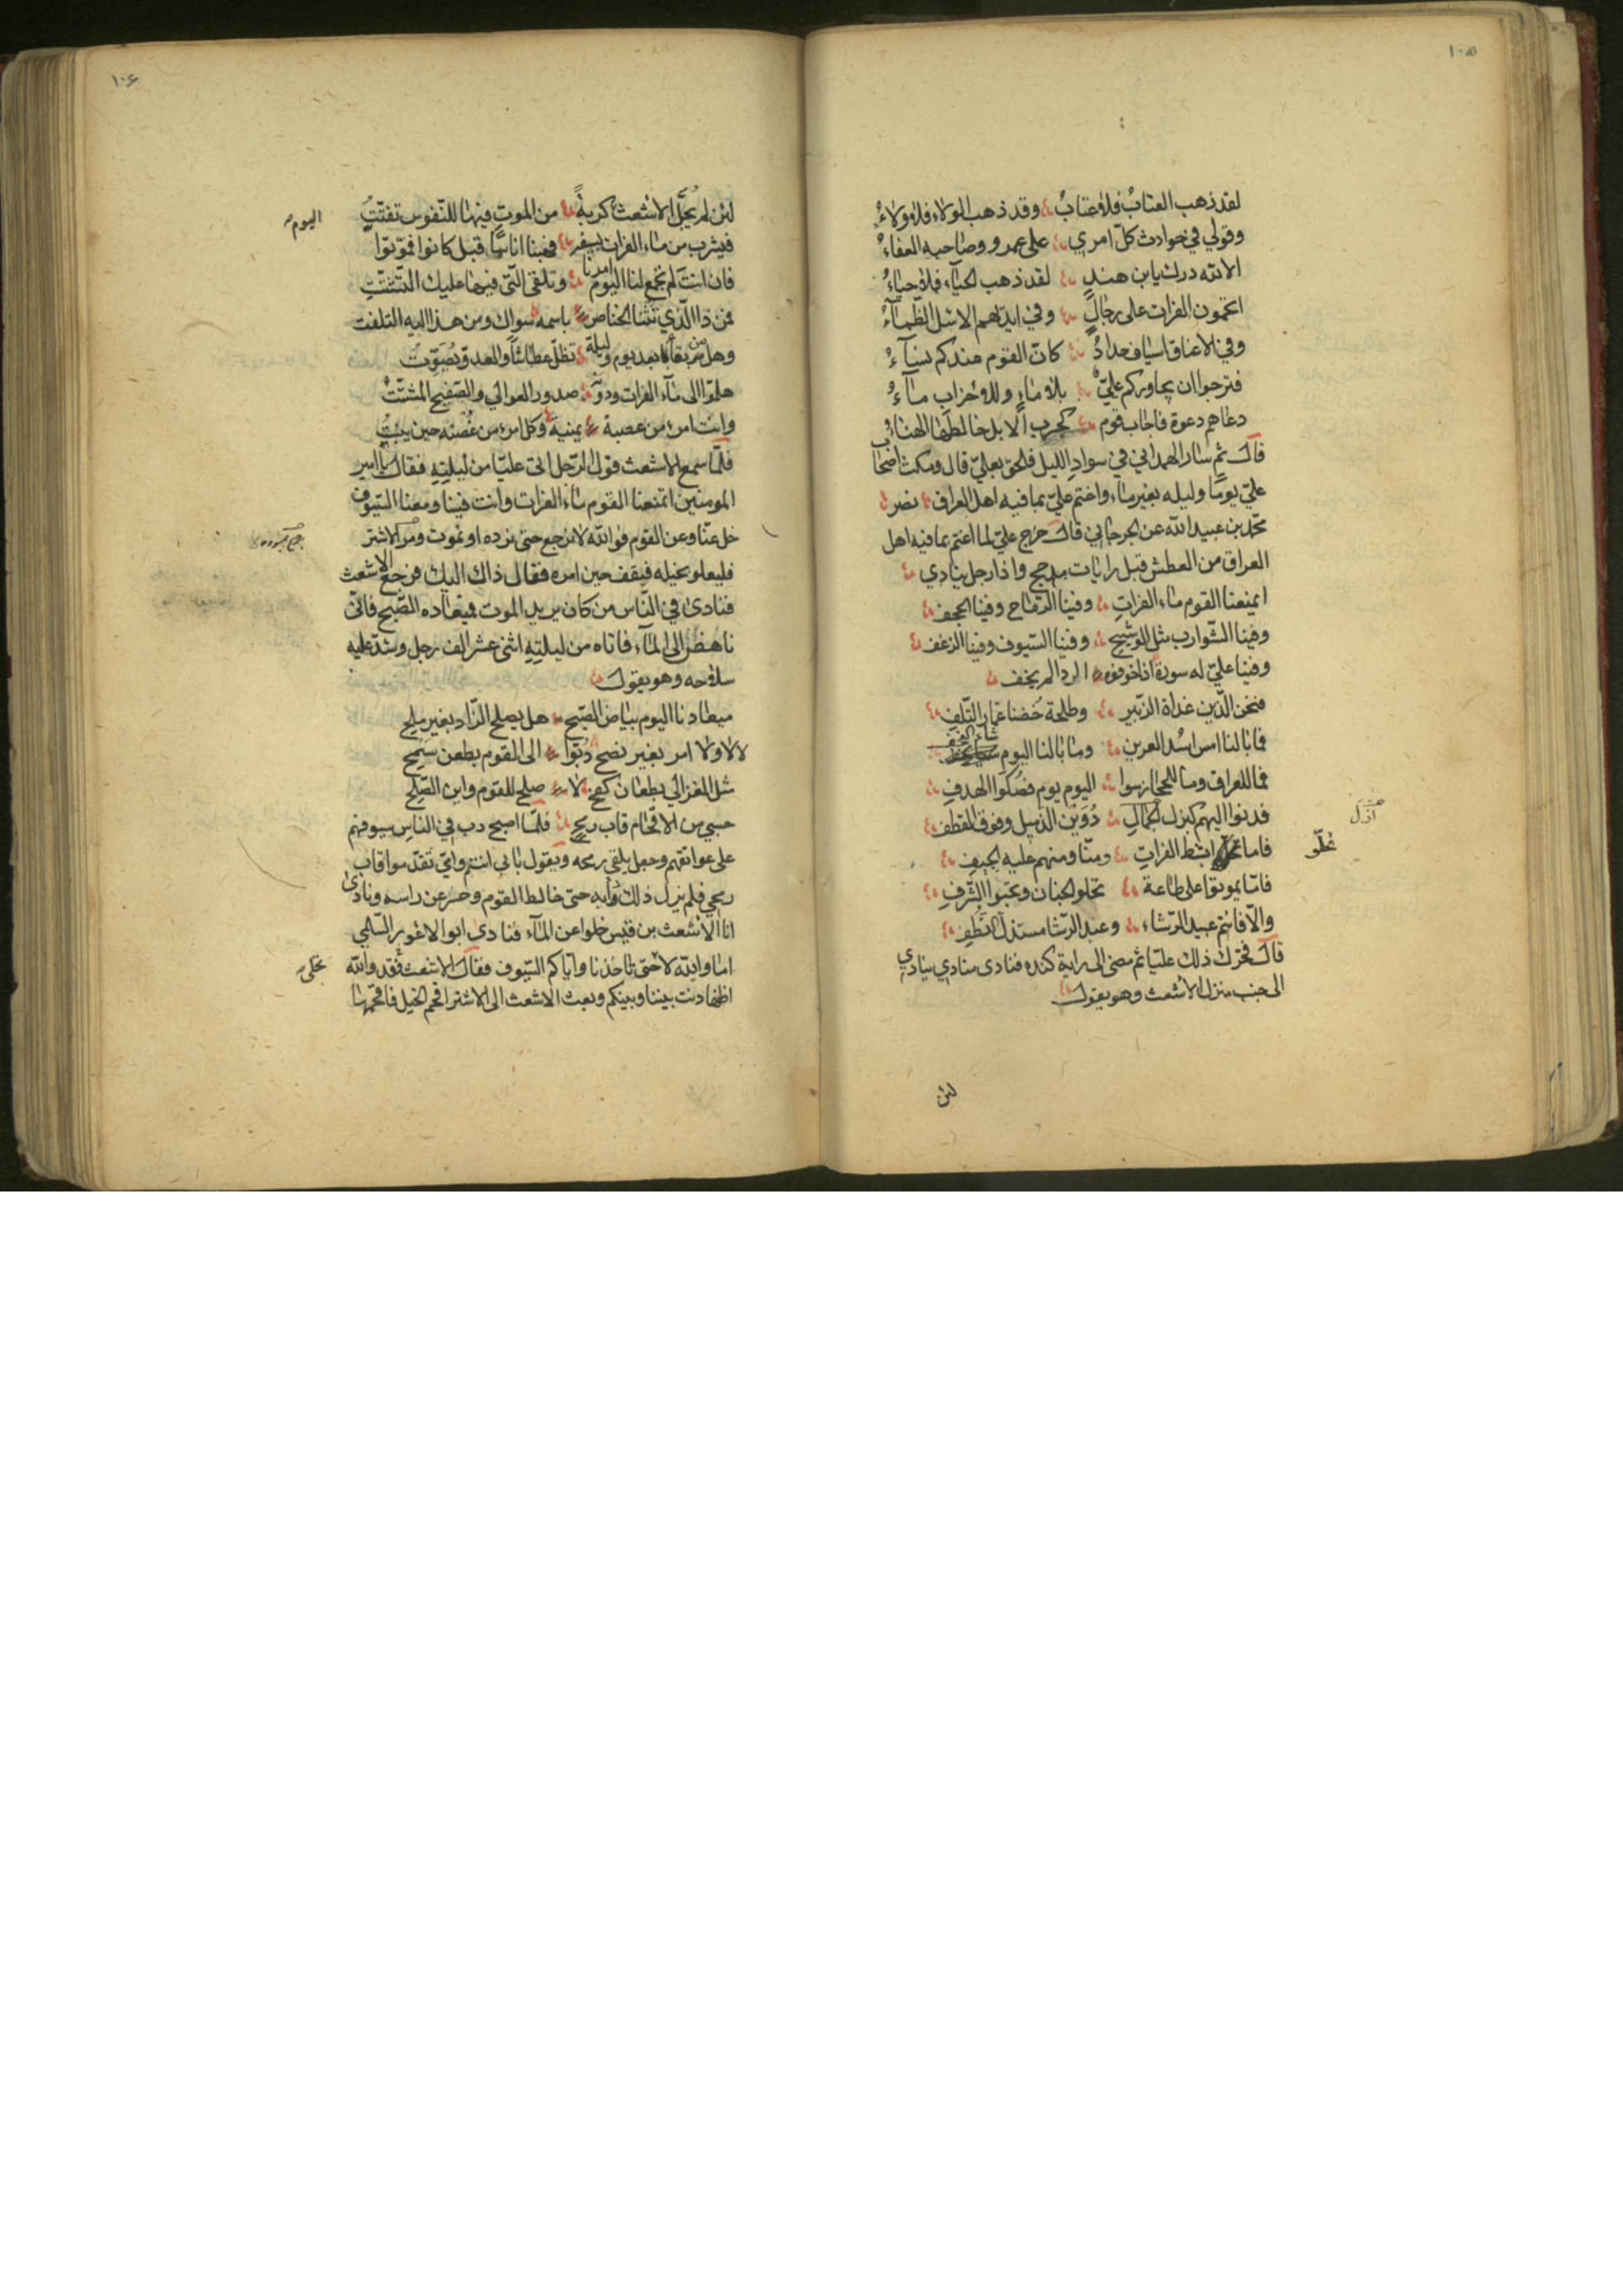 ١٠٥
لقد ذهب العتاب فلا عتاب وقد ذهب الولاء فلا ولاء
وقولي في حوادث كل امري على عمرو وصاحبه العفاء
الا لله درك يا بن هند لقد ذهب الحياء فلا حياء
اتحمون الفرات على رجال وفي ايديهم الاسل الظماء
وفي الاعناق اسياف حداد كان القوم عندكم نساء
فترجوا ان يجاوركم علي بلا ماء وللاحزاب ماء
دعاهم دعوة فاجاب قوم كجرب الابل خالطها الهناء
قال ثم سار الهمداني في سواد الليل فلحق بعلي قال ومكث اصحاب
علي يوما وليله بغير ماء واغتم علي بما فيه اهل العراق نصر
محمد بن عبيد الله عن الجرجاني قال خرج علي لما اغتم بما فيه اهل
العراق من العطش قبل رايات مذحج واذا رجل ينادي
ايمنعنا القوم ماء الفرات وفينا الرماح وفينا الحجف
وفينا الشوازب مثل الوشيج وفينا السيوف وفينا الزغف
وفينا علي له سورة اذا خوفوه الردا لم يخف
فنحن الذين غداة الزبير وطلحة خضنا غمار التلف
فما بالنا امس اسد العرين وما بالنا اليوم شاء النجف
فما للعراق وما للحجاز سوا اليوم يوم فصكوا الهدف
فدنوا اليهم كبزل الجمال دوين الذميل وفوق القطف
فاما بشط الفرات ومنا ومنهم عليه الجيف
غلو
فاما يموتوا على طاعة تحلو الجنان وتحبوا الشرف
والا فانتم عبيد الرشاء وعبد الرشا مستذل النطف
قال فحرك ذلك عليا ثم مضى الى راية كنده فنادى منادي ينادي
الى جنب منزل الاشعث وهو يقول
لئن
١٠٦
لئن لم يجل الاشعث كربة من الموت فيها للنفوس تفتت
اليوم
فيشرب من ماء الفرات بسيفه فهبنا اناسا قبل كانوا فموتوا
فان انت لم تجمع لنا اليوم امرنا وتلقى التي فيها عليك التشتت
فمن ذا الذي تثنا الخناصر باسمه سواك ومن هذا اليه التلفت
وهل من بقاء بعد يوم وليلة تظل عطاشا والعدو يصوت
هلموا الى ماء الفرات ودونه صدور العوالي والصفيح المشتت
وانت امرء من عصبة يمنية وكل امرء من غصنه حين ينبت
فلما سمع الاشعث قول الرجل اتى عليا من ليلته فقال يا امير
المومنين ايمنعنا القوم ماء الفرات وانت فينا ومعنا السيوف
خل عنا وعن القوم فوالله لا نرجع حتى نرده او نموت ومر الاشتر
فليعلو بخيله فيقف حين امره فقال ذاك اليك فرجع الاشعث
فنادى في الناس من كان يريد الموت فميعاده الصبح فاني
ناهض الى الماء فاتاه من ليلته اثنى عشر الف رجل وشد عليه
سلاحه وهو يقول
ميعادنا اليوم بياض الصبح هل يصلح الزاد بغير ملح
لا لا ولا امر بغير نصح دبوا الى القوم بطعن سمح
مثل العزالي بطعان كفح لا صلح للقوم واين الصلح
حسبي من الاقحام قاب رمح فلما اصبح دب في الناس سيوفهم
على عواتقهم وجعل يلقي رمحه ويقول بابي انتم وامي تقدموا قاب
رمحي فلم يزل ذلك دابه حتى خالط القوم وحسر عن راسه ونادى
انا الاشعث بن قيس خلوا عن الماء فنادى ابو الاعور السلمي
اما والله لا حتى تاخذنا واياكم السيوف فقال الاشعث فقد والله
اظنها دنت بيننا وبينكم وبعث الاشعث الى الاشتر اقحم الخيل فاقحمها